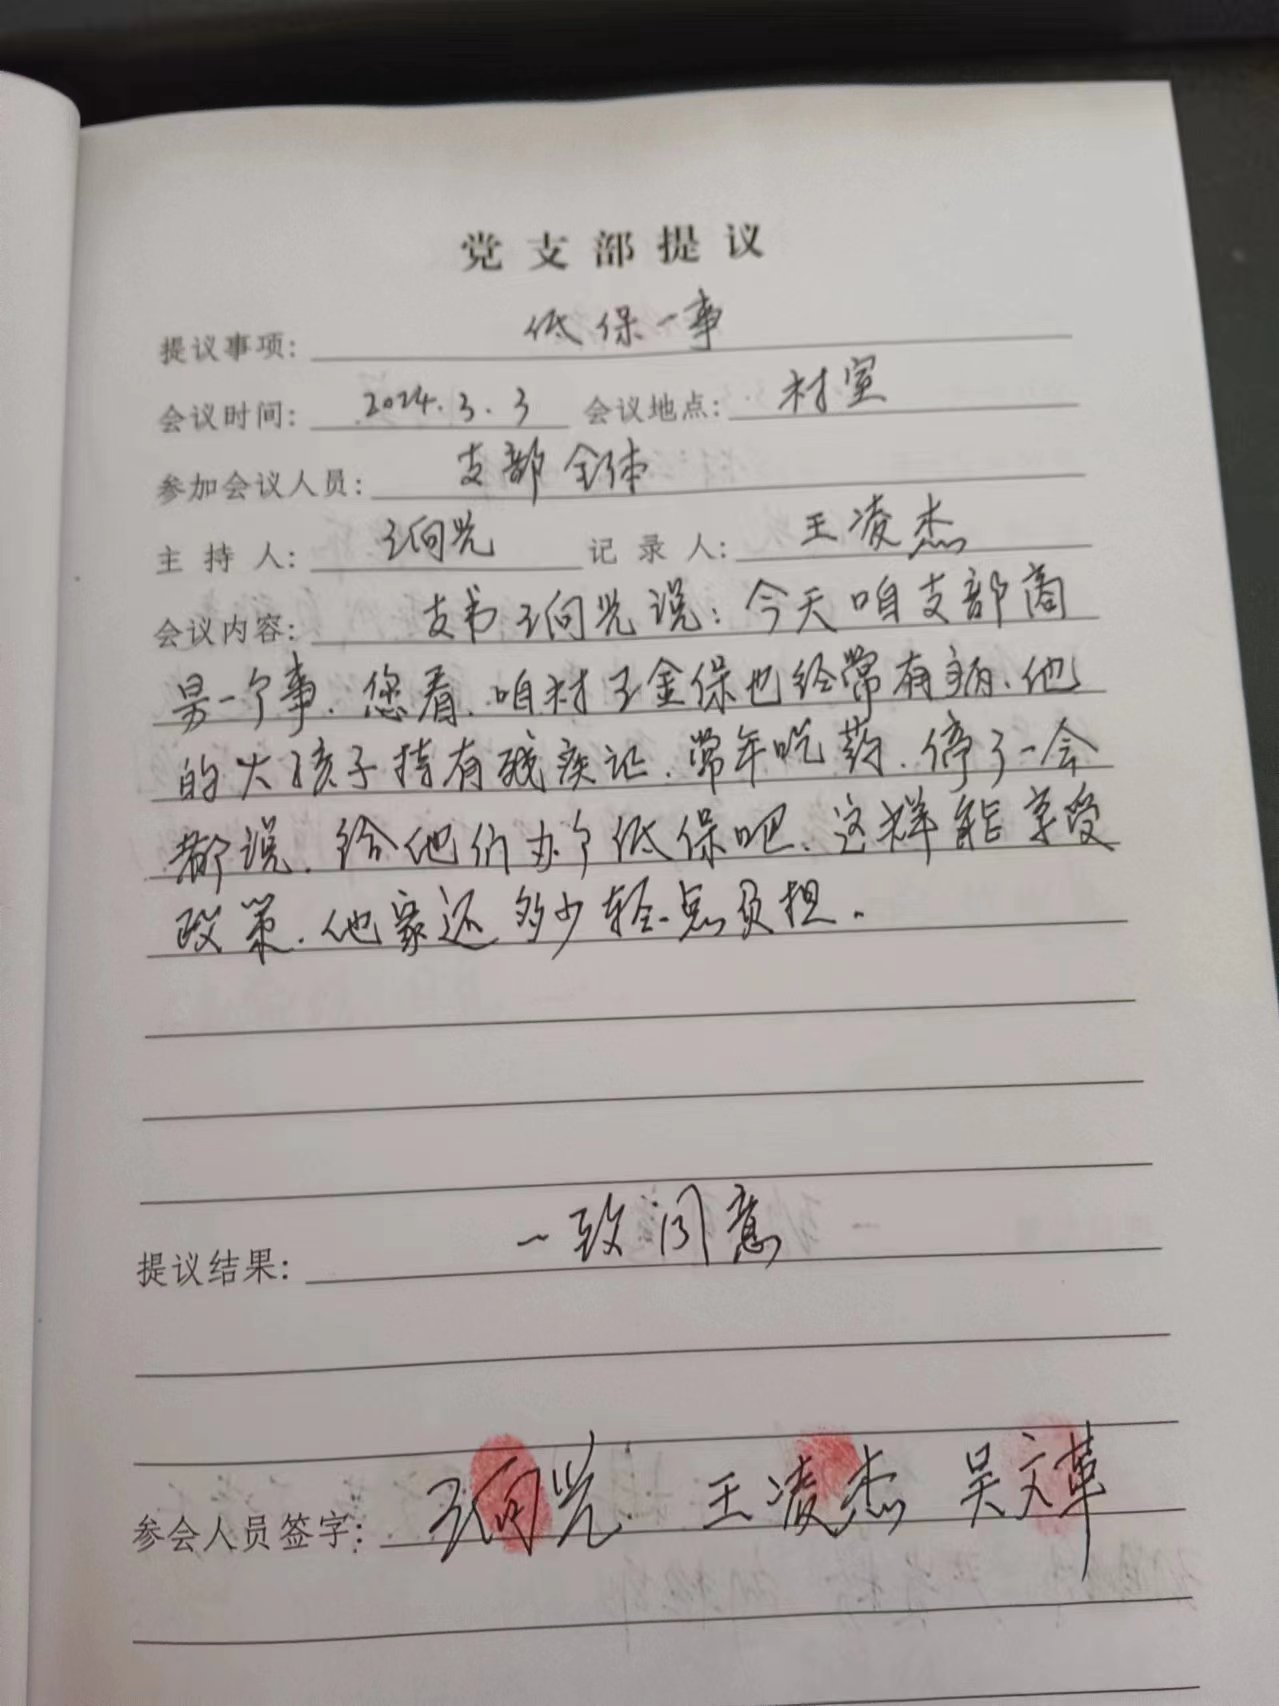 党支部提议
提议事项: 低保一事
会议时间: 2024.3.3 会议地点: 村室
参加会议人员: 支部全体
主持人: 王向党 记录人: 王凌杰
会议内容: 支书王向党说:今天咱支部商
另一个事.您看.咱村王金保也经常有病.他
的大孩子持有残疾证.常年吃药.停了一会
都说.给他们办个低保吧.这样能享受
政策.他家还多少轻点负担.
提议结果: 一致同意
参会人员签字: 王向党 王凌杰 吴文革